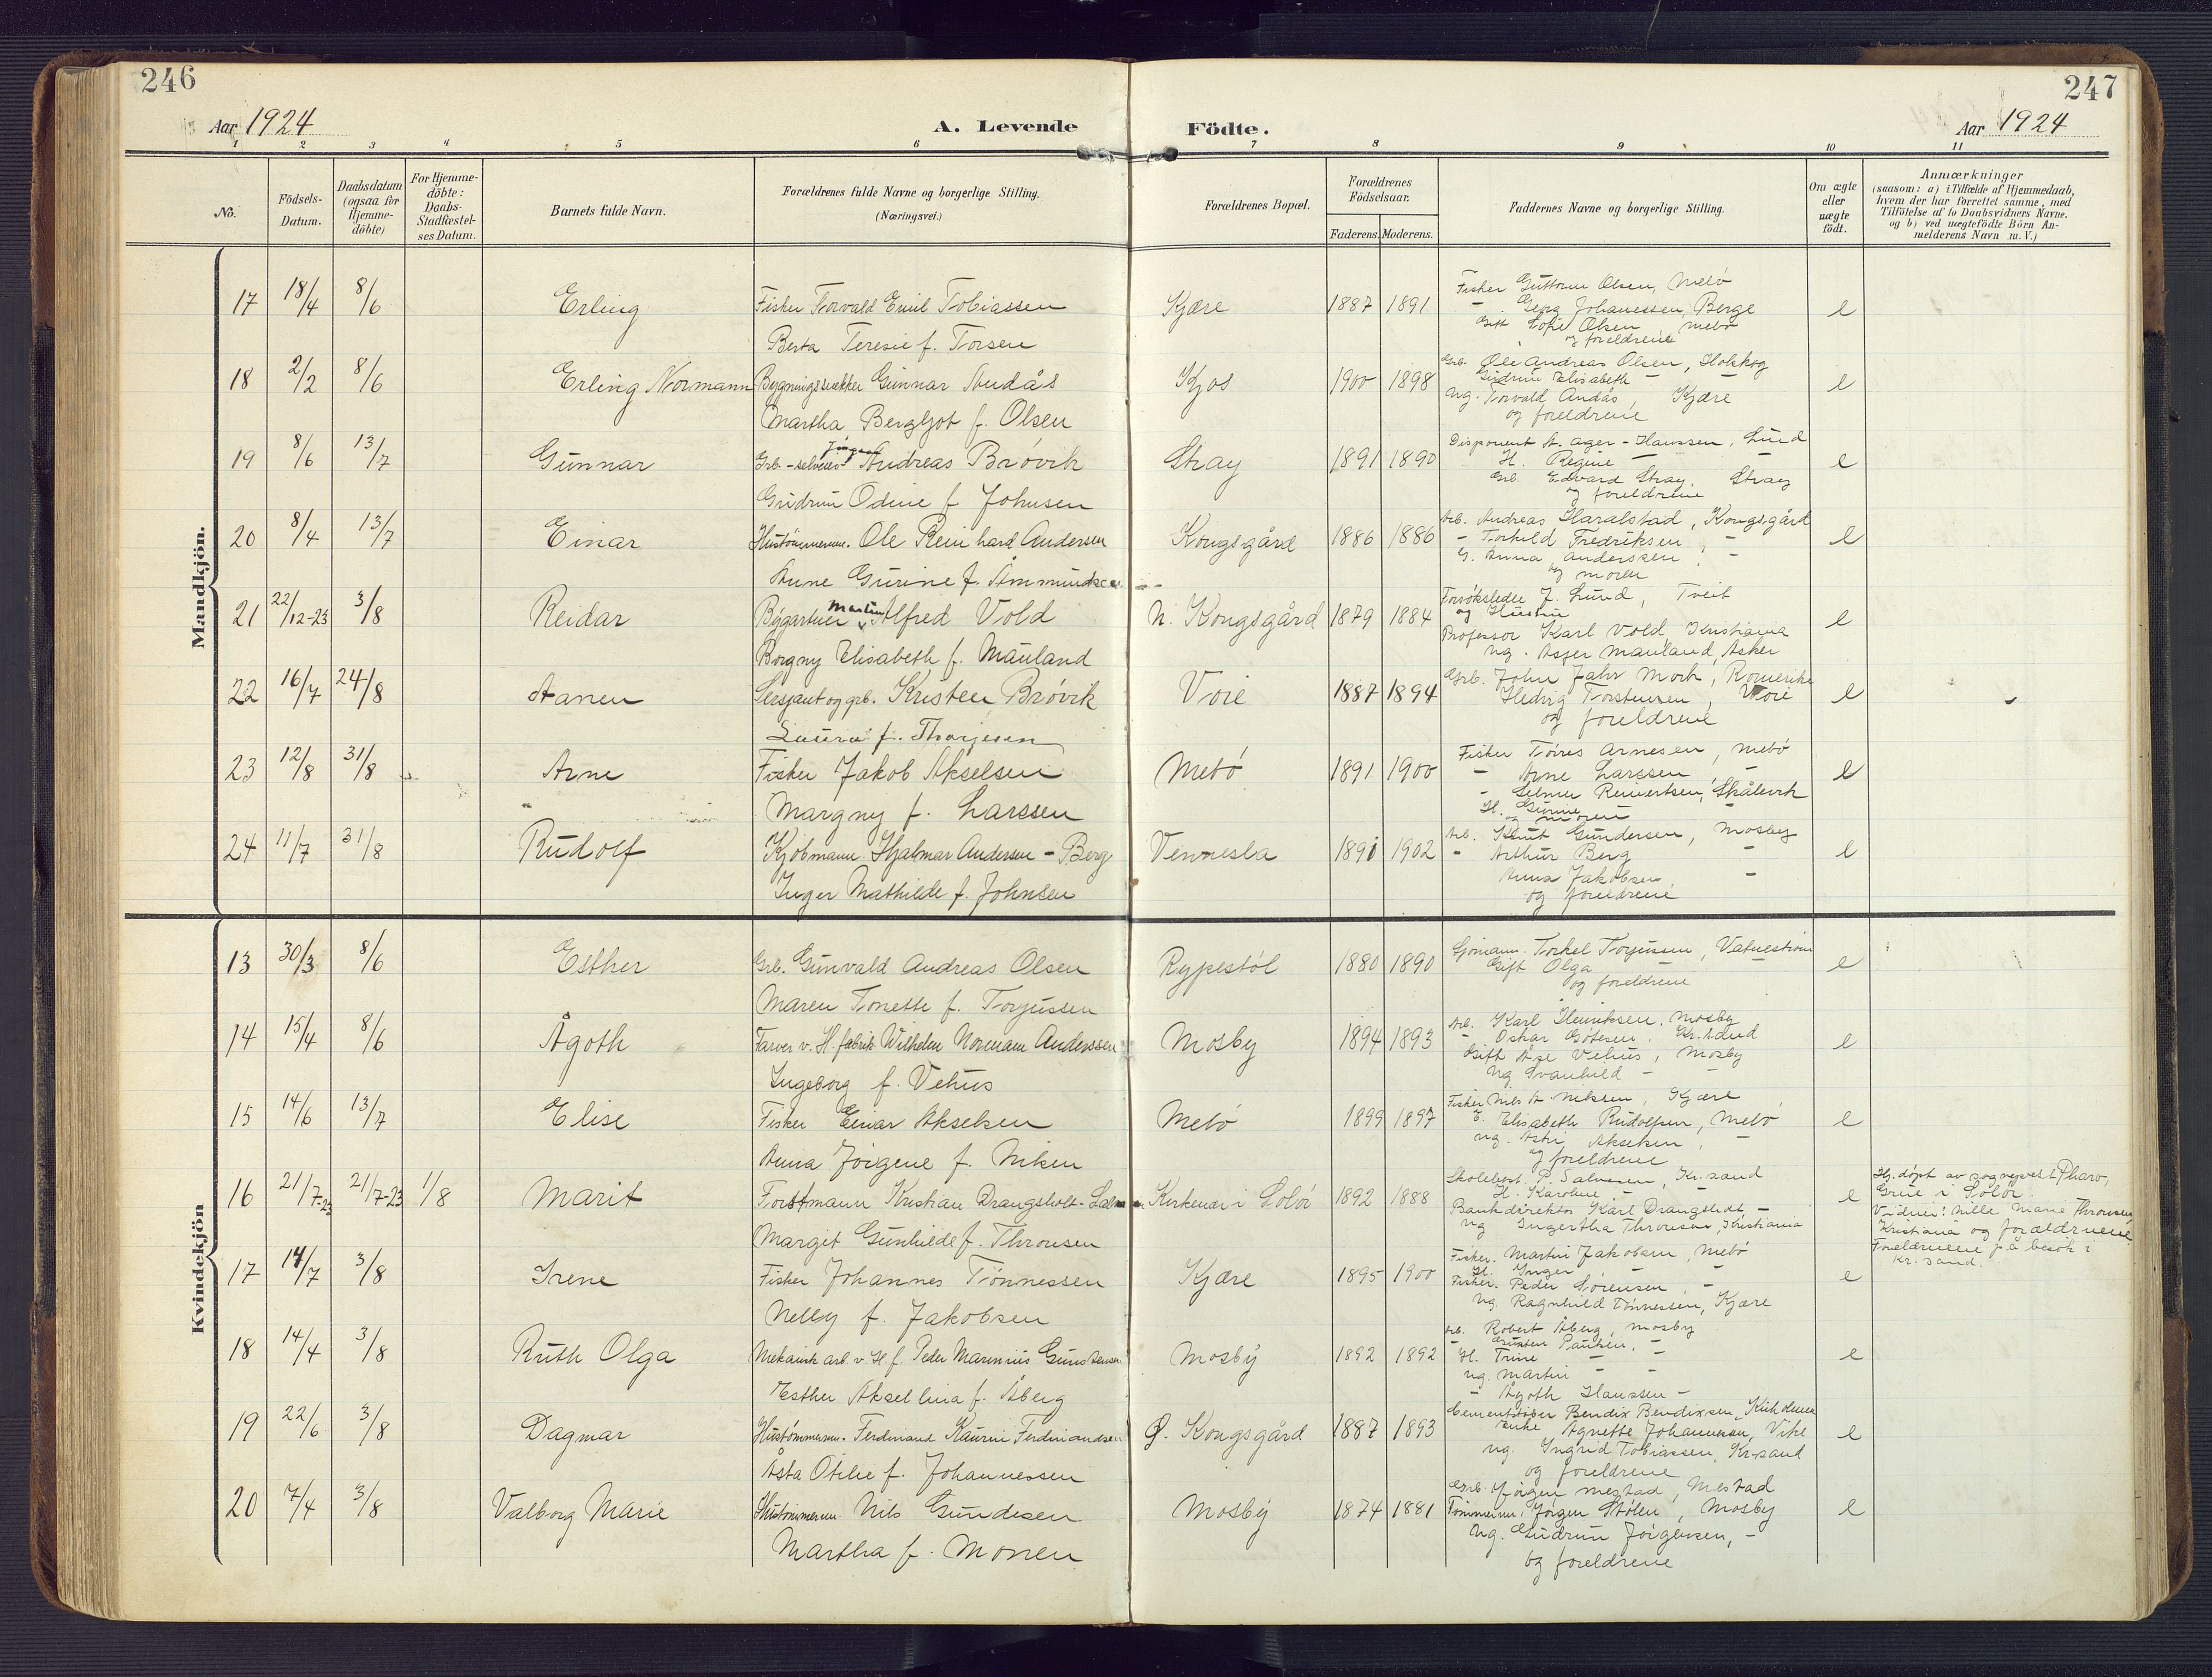 246
247
Aar 1924
A. Levende Födte.
Aar 1924
1 2 3 4 5 6 7 8 9 10 11
No.
Födsels-Datum.
Daabsdatum (ogsaa for Hjemme-döbte)
For Hjemme-döbte: Daabs-Stadfæstel-ses Datum.
Barnets fulde Navn.
Forældrenes fulde Navne og borgerlige Stilling.
(Næringsvei.)
Forældrenes Bopæl.
Forældrenes Födselsaar.
Faderens. Moderens.
Faddernes Navne og borgerlige Stilling.
Om ægte eller uægte födt.
Anmærkninger
(saasom: a) i Tilfælde af Hjemmedaab,
hvem der har forrettet samme, med
Tilföielse af to Daabsvidners Navne,
og b) ved uægtefödte Börn An-
melderens Navn m. V.)
Mandkjön.
17 18/4 8/6 Erling Fisker Torvald Emil Tobiassen Kjære 1887 1891 e
Berta Teresie f. Torsen
Fisker Guttorm Olsen, Metö
- Georg Johanessen, Berge
Gift Sofie Olsen Metö
og foreldrene
18 2/2 8/6 Erling Normann Bygningssnekker Gunnar Andås Kjos 1900 1898 e
Martha Bergljot f. Olsen
Grb. Ole Andreas Olsen,
Gudrun Elisabeth -
Ug. Torvald Andås, Kjære
og foreldrene
19 8/6 13/7 Gunnar Grb.-selveier Jörgen Andreas Brövik Stray 1891 1890 e
Gudrun Odine f. Johnsen
Disponent A. Ager-Hanssen, Lund
H. Regine -
Grb. Edvard Stray, Stray
og foreldrene
20 8/4 13/7 Einar Hustömmerm. Ole Reinhard Andersen Kongsgård 1886 1886 e
Anne Gurine f. Ammundsen
Arb. Andreas Haralstad, Kongsgård
- Torkild Fredriksen, -
G. Anna Anderssen, -
og moren
21 22/12-23 3/8 Reidar Bygartner Martin Alfred Vold N. Kongsgård 1879 1884 e
Borgny Elisabeth f. Mauland
Forsöksleder J. Lund, Tveit
og Hustru
Professor Karl Vold, Kristiania
Ug. Asger Mauland, Asker
22 16/7 24/8 Aanen Sersjant og grb. Kristen Brövik Voie 1887 1894 e
Laura f. Thorjesen
Grb. John Jahr Mork, Romerike
Hedvig Torstensen, Voie
og foreldrene
23 12/8 31/8 Arne Fisker Jakob Akselsen Metö 1891 1900 e
Margny f. Larssen
Fisker Töres Arnesen, Metö
- Arne Larssen -
- Selmer Reinertsen, Skålevik
H. Gurine -
og moren
24 11/7 31/8 Rudolf Kjöbmann Hjalmar Andersen-Berg Vennesla 1891 1902 e
Inger Mathilde f. Johnsen
Arb. Knut Gundersen, Mosby
- Arthur Berg -
Anna Jakobsen, -
og foreldrene
Kvindekjön
13 30/3 8/6 Esther Grb. Gunvald Andreas Olsen Rypestöl 1880 1890 e
Maren Tonette f. Torjussen
Sjömann Torkel Torjussen, Vatneström
Gift Olga -
og foreldrene
14 15/4 8/6 Ågoth Farver v. H. fabrik Wilhelm Normann Anderssen Mosby 1894 1893 e
Ingeborg f. Vehus
Arb. Karl Henriksen, Mosby
- Oskar , Kr.sand
Gift Åse Vehus, Mosby
Ug Svanhild - -
15 14/6 13/7 Elise Fisker Einar Akselsen Metö 1899 1897 e
Anna Jörgene f. Nilsen
Fisker Nils A. Nilssen, Kjære
E. Elisabeth Rudolfsen, Metö
Ug. Astri Akselsen, -
og foreldrene
16 21/7-23 21/7-23 1/8 Marit Forstmann Kristian Drangsholt- Kirkenær i Solör 1892 1888 e
Margit Gunhilde f. Thronsen
Skolebest. P. Salvesen, Kr.sand
H. Karoline -
Bankdirektör Karl Drangsholt, -
Ug Ingertha Thronsen, Kristiania
Hj. döpt av sogneprest Pharo,
Grue i Solör.
Vidner: Nille Marie Thronsen
Kristiania og foreldrene.
Foreldrene på besök i
Kr.sand.
17 14/7 3/8 Irene Fisker Johannes Tönnessen Kjære 1895 1900 e
Nelly f. Jakobsen
Fisker. Martin Jakobsen, Metö
H. Inger - -
Fisker. Peder Sörensen, -
Ug. Ragnhild Tönnessen, Kjære
18 14/4 3/8 Ruth Olga Mekanik arb. v. H. f. Peder Marinius Gunstensen Mosby 1892 1892 e
Esther Aksellina f. Åberg
Arb. Robert Åberg, Mosby
- Paulsen, -
H. Trine - -
Ug. Martin - -
- Ågoth Hanssen -
19 22/6 3/8 Dagmar Hustömmerm. Ferdinand Kaurin Ferdinandsen Ø. Kongsgård 1887 1893 e
Åsta Otilie f. Johannessen
Cementstöber Bendix Bendixsen,
Enke Agnette Johannessen, Vike
Ug. Ingrid Tobiassen, Kr.sand
og foreldrene
20 7/4 3/8 Valborg Marie Hustömmerm. Nils Gundesen Mosby 1874 1881 e
Martha f. Monen
Grb. Jörgen Mestad, Mestad
Tömmerm. Jörgen Stölen, Mosby
Ug. Gudrun Jörgensen, -
og foreldrene